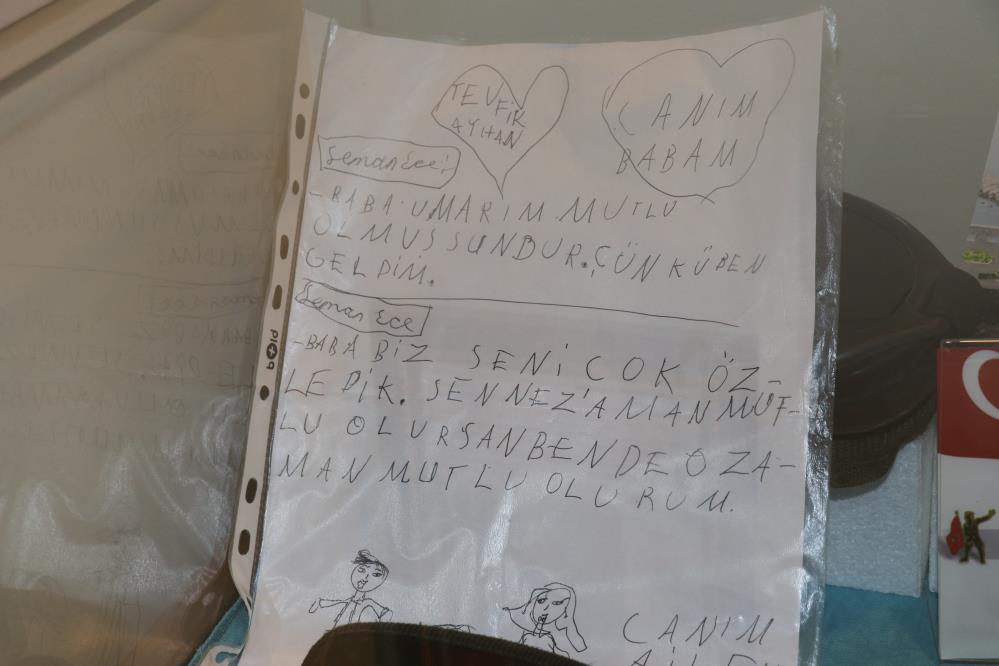 TEVFİK
AYHAN
CANIM
BABAM
Seman Ece:
- BABA UMARIM MUTLU
OLMUŞSUNDUR. ÇÜNKÜ BEN
GELDİM.
Seman Ece
- BABA BİZ SENİ COK ÖZ-
LEDİK. SEN NEZAMAN MUT-
LU OLURSAN BENDE O ZA-
MAN MUTLU OLURUM.
CANIM